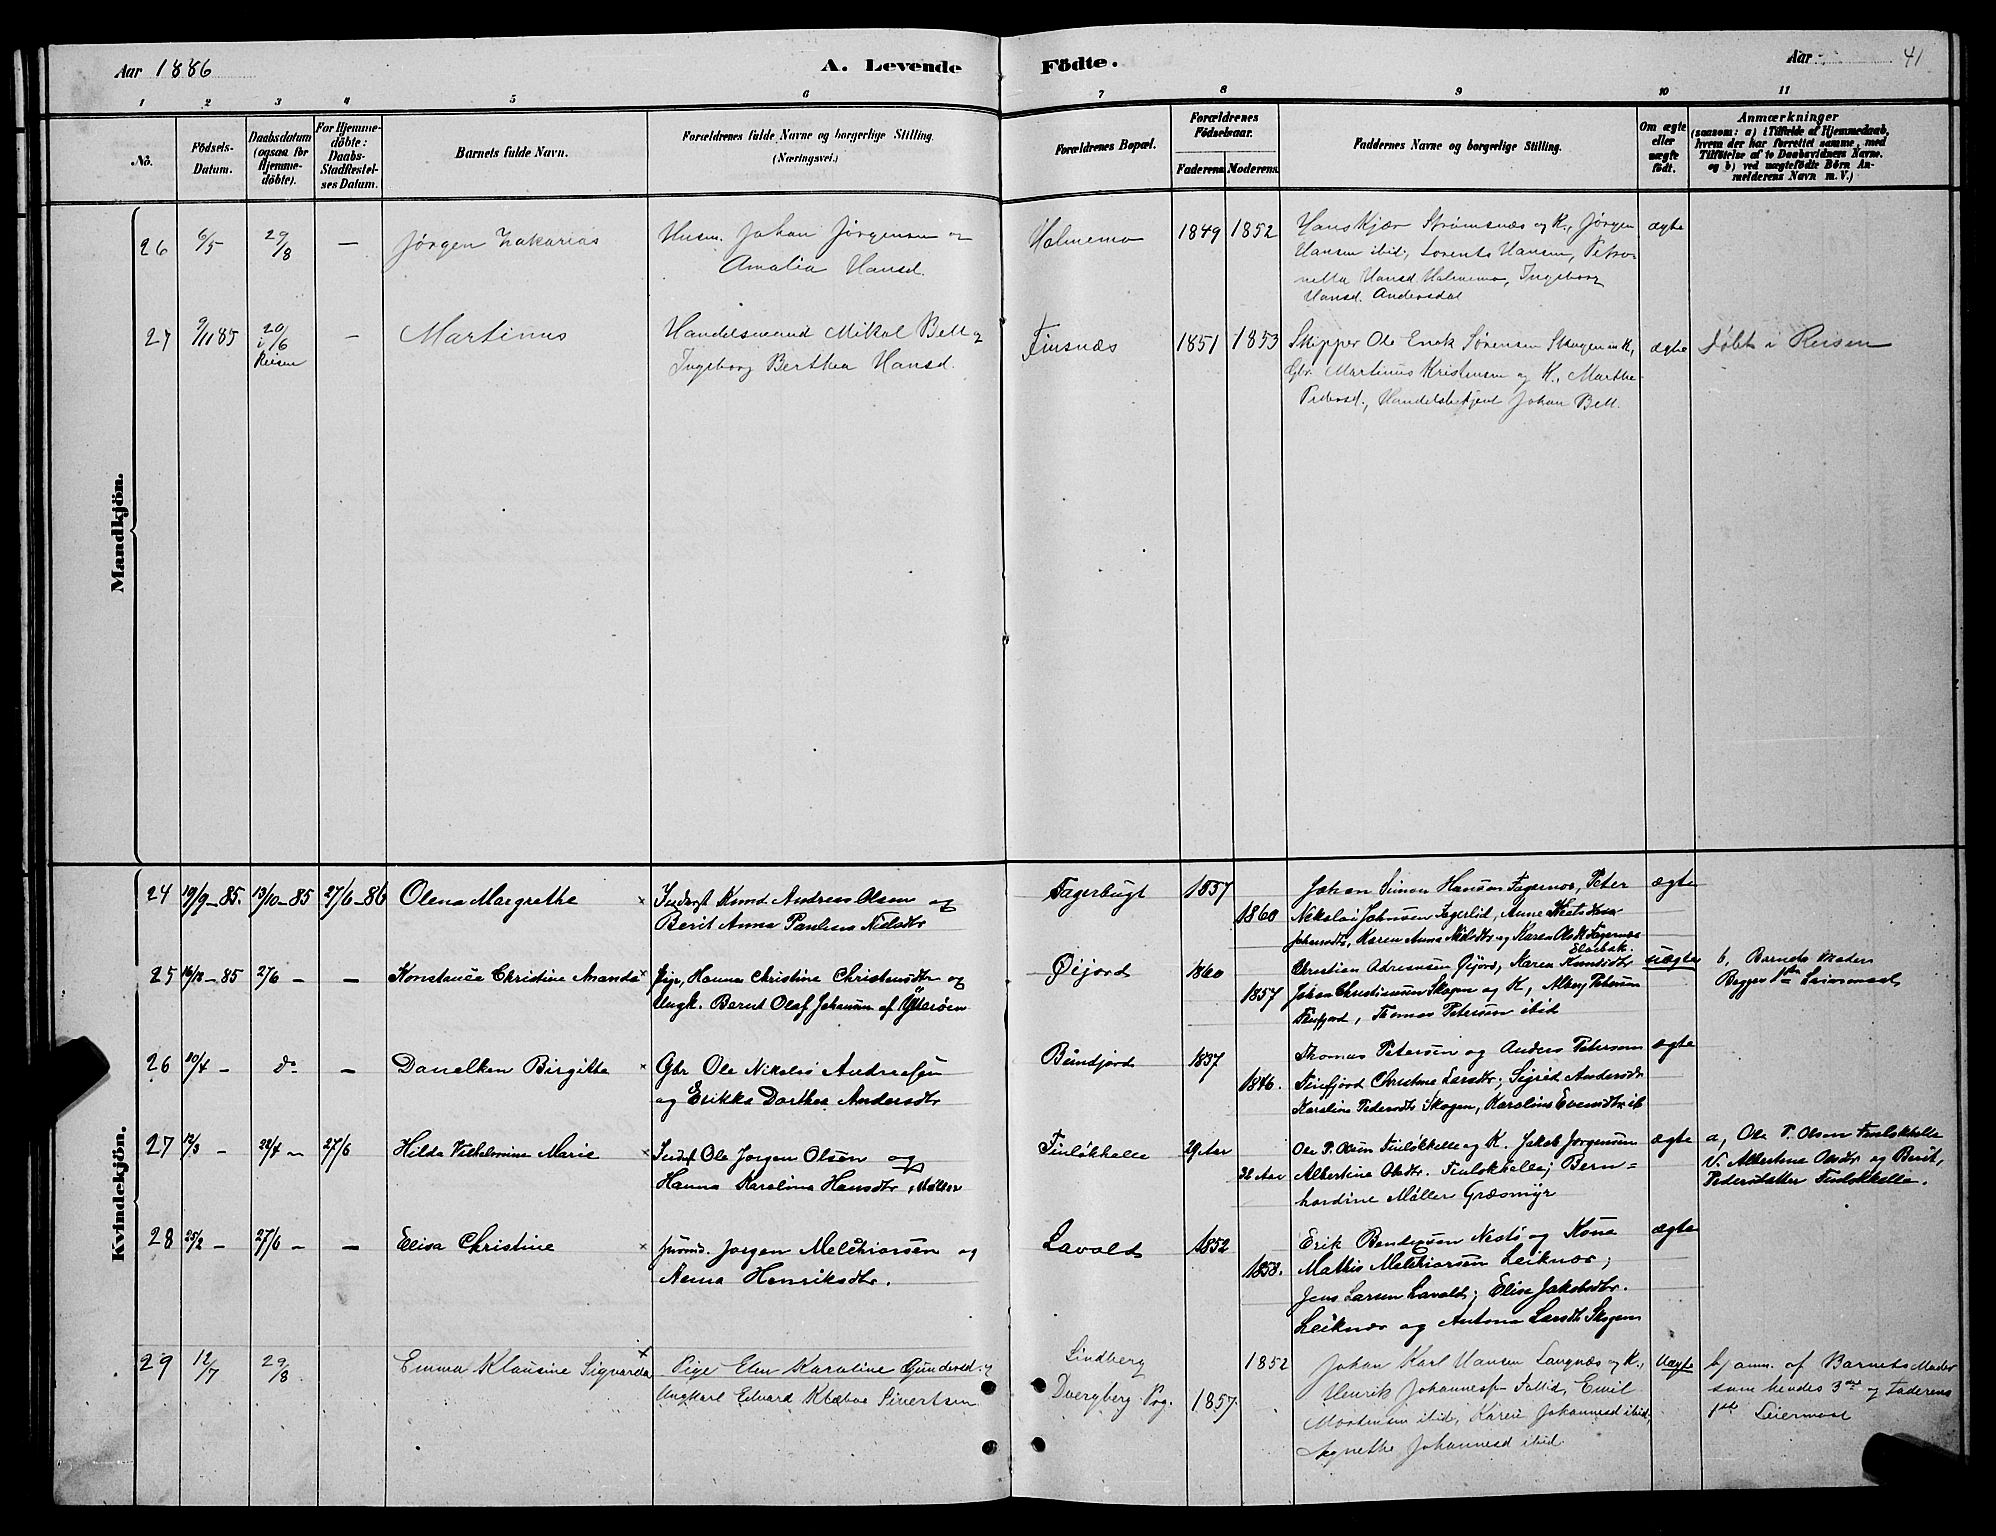 Aar 1886
A. Levende Födte.
Aar 41
1 2 3 4 5 6 7 8 9 10 11
No.
Födsels-
Datum.
Daabsdatum
(ogsaa for
Hjemme-
döbte).
For Hjemme-
döbte:
Daabs-
Stadfæstel-
ses Datum.
Barnets fulde Navn.
Forældrenes fulde Navne og borgerlige Stilling.
(Næringsvei.)
Forældrenes Bopæl.
Forældrenes
Födselsaar.
Faderens Moderens
Faddernes Navne og borgerlige Stilling.
Om ægte
eller
uægte
født.
Anmærkninger
(saasom: a) i Tilfælde af Hjemmedaab,
hvem der har forrettet samme, med
Tilføielse af to Daabsvidners Navne.
og b) ved uægtefødte Börn An-
melderens Navn m. V.)
Mandkjön.
26 6/5 29/8 — Jørgen Zakarias
Husm. Johan Jørgensen og
Amalia Hansd.
Holmemo 1849 1852
Hans Kjær Strømsnæs og K., Jørgen
Hansen ibid, Lorents Hansen, Petro-
nella Hansd. Holmemo, Ingeborg
Hansd. Andersdal
ægte
27 9/11 85 20/6 i Reisen — Martinus
Handelsmand Mikal Bell og
Ingeborg Berthea Hansd.
Finsnæs 1851 1853
Skipper Ole Enok Sørensen Skogen m K,
Gbr. Martinus Kristensen og K., Marthe
Pedersd., Handelsbetjent Johan Bell.
ægte døbt i Reisen
Kvindekjön.
24 19/9-85. 13/10-85 27/6-86 Olena Margrethe
Inderst Knud Andreas Olsen og
Berit Anna Paulina Nielsdtr
Fagerbugt 1857
1860
Johan Simon Hansen Fagernes, Peter
Nikolai Johnsen Fagerlid, Anne
Johansdtr, Karen Anna Nielsdtr og Karen Ols
Elvebak.
ægte
25 16/12-85 27/6 — — Konstance Christine Amanda
Pige, Hanna Christine Christensdtr og
Ungk. Bernt Olaf Johansen af Ytterøen
Øijord 1860
1857
Christian Adriansen Øijord, Karen Knudsdtr
Johan Christiansen Skogen og K, Alberg Petersen
Finfjord, Thomas Petersen ibid
uægte
b, Barnets Moder
Begges 1ste Leiermaal
26 10/4 — do — Danelken Birgitte
Gbr Ole Nikolai Andreasen
og Erikka Dorthea Andersdtr
Bundjord 1837
1846.
Thomas Petersen og Anders Petersen
Finfjord Christine Larsdtr, Sigrid Andersdtr
Karoline Pedersdtr Skogen, Karoline Evensdtr ib
ægte
27 12/3 — 22/4 — 27/6 Hilda Vilhelmine Marie
Inderst Ole Jorgen Olsen og
Hanna Karoline Hansdtr, Møller
Finløkkelle 29 Aar
32 Aar
Ole P. Olsen Finløkkelle og K. Jakob Jorgensen
Albertine Olsdtr. Finløkkelle, Bern=
hardine Møller Græsmyr
ægte
a, Ole P. Olsen Finløkkelle
V. Albertine Olsdtr og Berit,
Pedersdatter Finløkkelle.
28 25/2 — 27/6 — — Elisa Christine
Jorgen Melchiorsen og
Anna Henriksdtr.
Lavold 1852
1858.
Erik Bendixsen Nestø og Kone
Mathis Melchiorsen Leiknes,
Jens Larsen Lavold, Elise Jakobsdtr.
Leiknes og Antona Larsdtr Skogen
ægte
29 12/7 29/8 Emma Klausine Sigvarda
Pige Elen Karoline Gundersd. og
Ungkarl Edvard Klæboe Sivertsen
Lindberg
Dverberg Prg. 1857
1852
Johan Karl Hansen Langnæs og K.,
Henrik Johannesen Soltid, Emil
Mortensen ibid, Karen Johannesd ibid,
Agnethe Johannesd ibid.
Uægte
b) anm. af Barnets Moder
som hendes 3die og Faderens
1ste Leiermaal